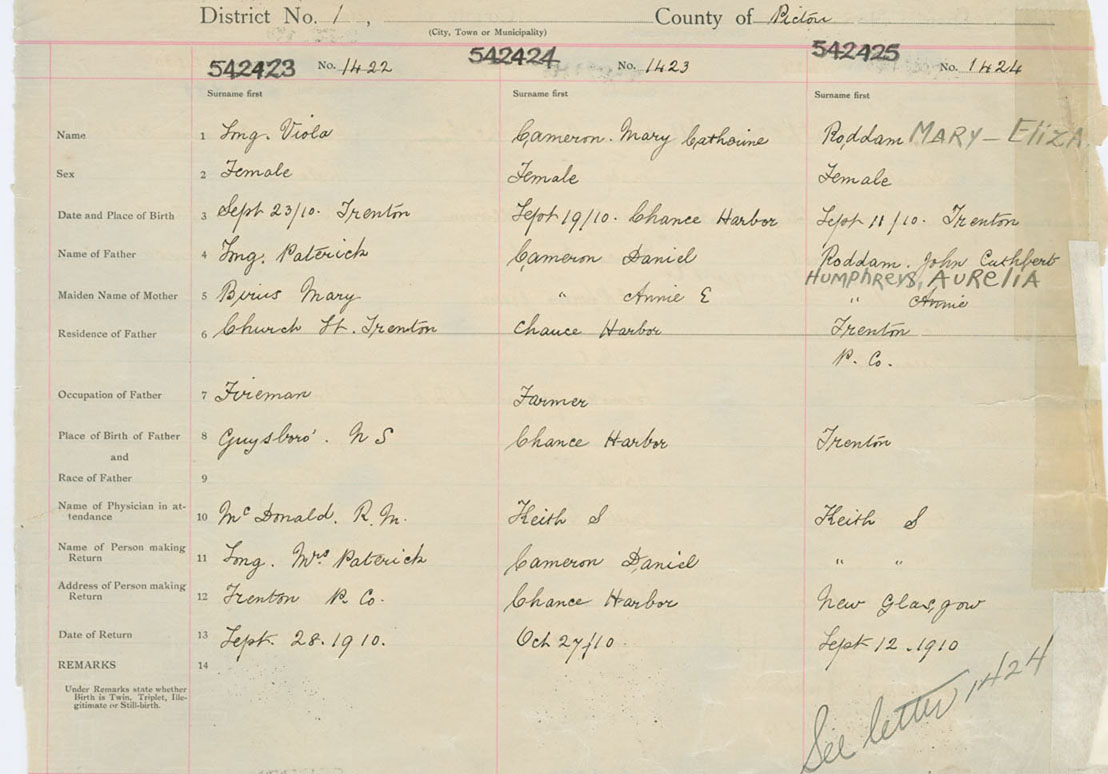 District No. 1 , County of Pictou
(City, Town or Municipality)
542423 No. 1422 542424 No. 1423 542425 No. 1424
Surname first Surname first Surname first
Name 1 Long. Viola Cameron. Mary Catherine Roddam MARY - ElizA
Sex 2 Female Female Female
Date and Place of Birth 3 Sept 23/10. Trenton Sept 19/10. Chance Harbor Sept 11/10. Trenton
Name of Father 4 Long. Paterick Cameron Daniel Roddam. John Cuthbert
HUMPHREYS, AURELIA
Maiden Name of Mother 5 Mary " Annie E " Annie
Residence of Father 6 Church St. Trenton Chance Harbor Trenton
P. Co.
Occupation of Father 7 Fireman Farmer
Place of Birth of Father 8 Guysboro'. N S Chance Harbor Trenton
and
Race of Father 9
Name of Physician in at-
tendance 10 Mc Donald. R. M. Keith S Keith S
Name of Person making
Return 11 Long. Mrs Paterick Cameron Daniel " "
Address of Person making
Return 12 Trenton P. Co. Chance Harbor New Glasgow
Date of Return 13 Sept. 28. 1910. Oct 27/10. Sept 12. 1910
REMARKS 14
Under Remarks state whether
Birth is Twin, Triplet, Ille-
gitimate or Still-birth.
See letter 1424